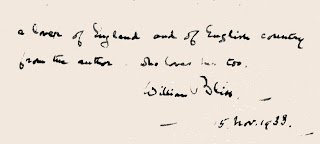 a lover of England and of English country
from the author . who loves too.
William Bliss.
5 Nov. 1933.